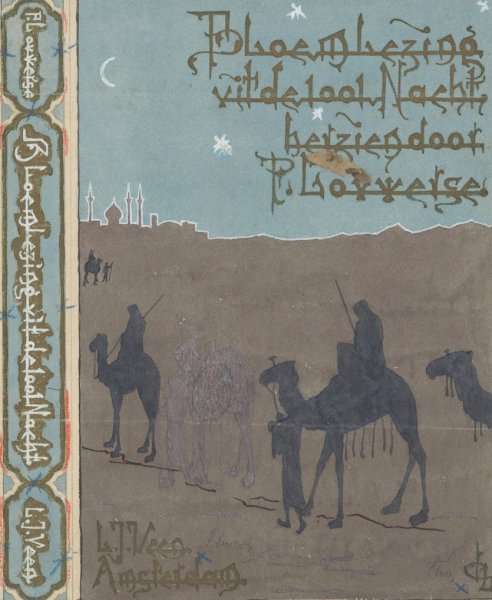 Bloemlezing
uit de 1001 Nacht
herzien door
P. Louwerse.
L.J. Veen.
Amsterdam.
P. Louwerse
Bloemlezing uit de 1001 Nacht
L.J. Veen